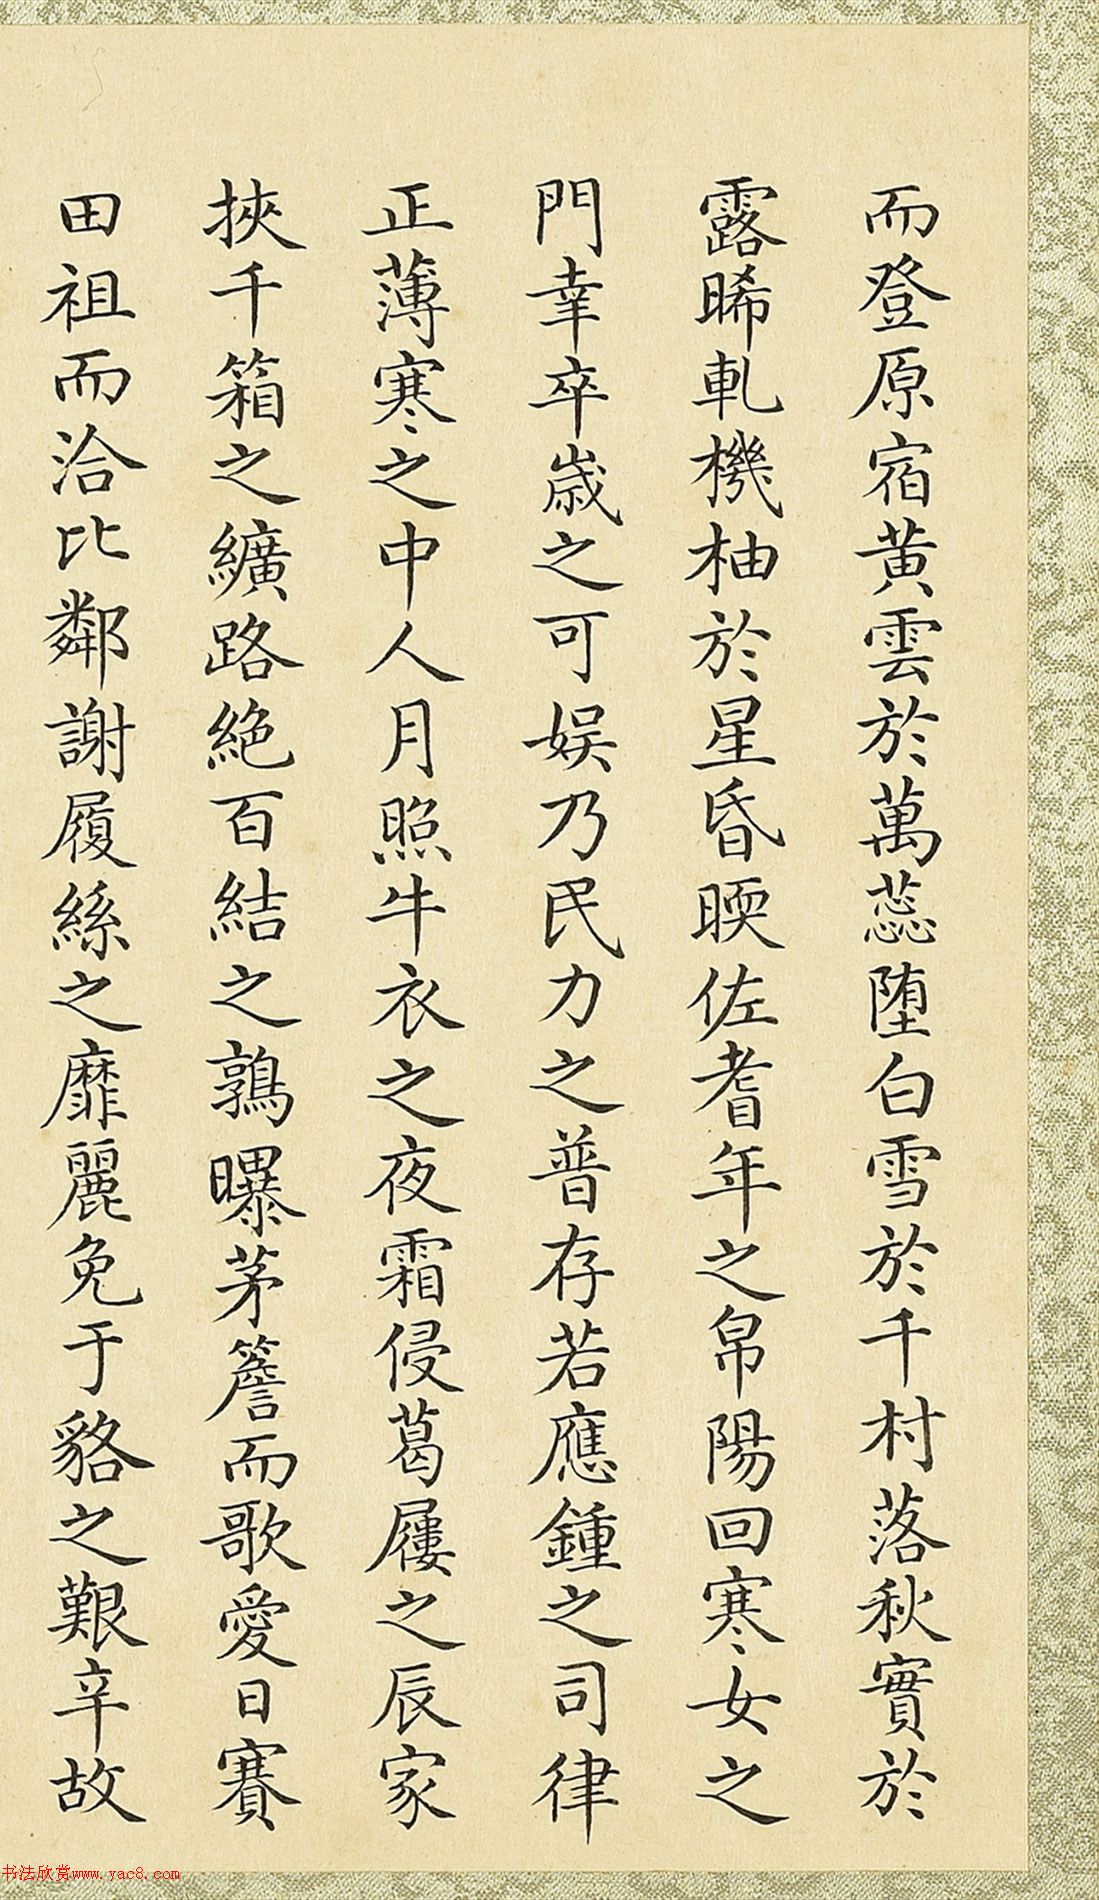 而登原宿黄雲於萬蕊墮白雪於千村落秋實於
露晞軋機柚於星昏䎡佐耆年之帛陽回寒女之
門幸卒歲之可娱乃民力之普存若應鍾之司律
正薄寒之中人月照牛衣之夜霜侵葛屨之辰家
挾千箱之纊路絶百結之鶉曝茅簷而歌愛日賽
田祖而洽比鄰謝履絲之靡麗免于貉之艱辛故
书法欣赏www.yac8.com